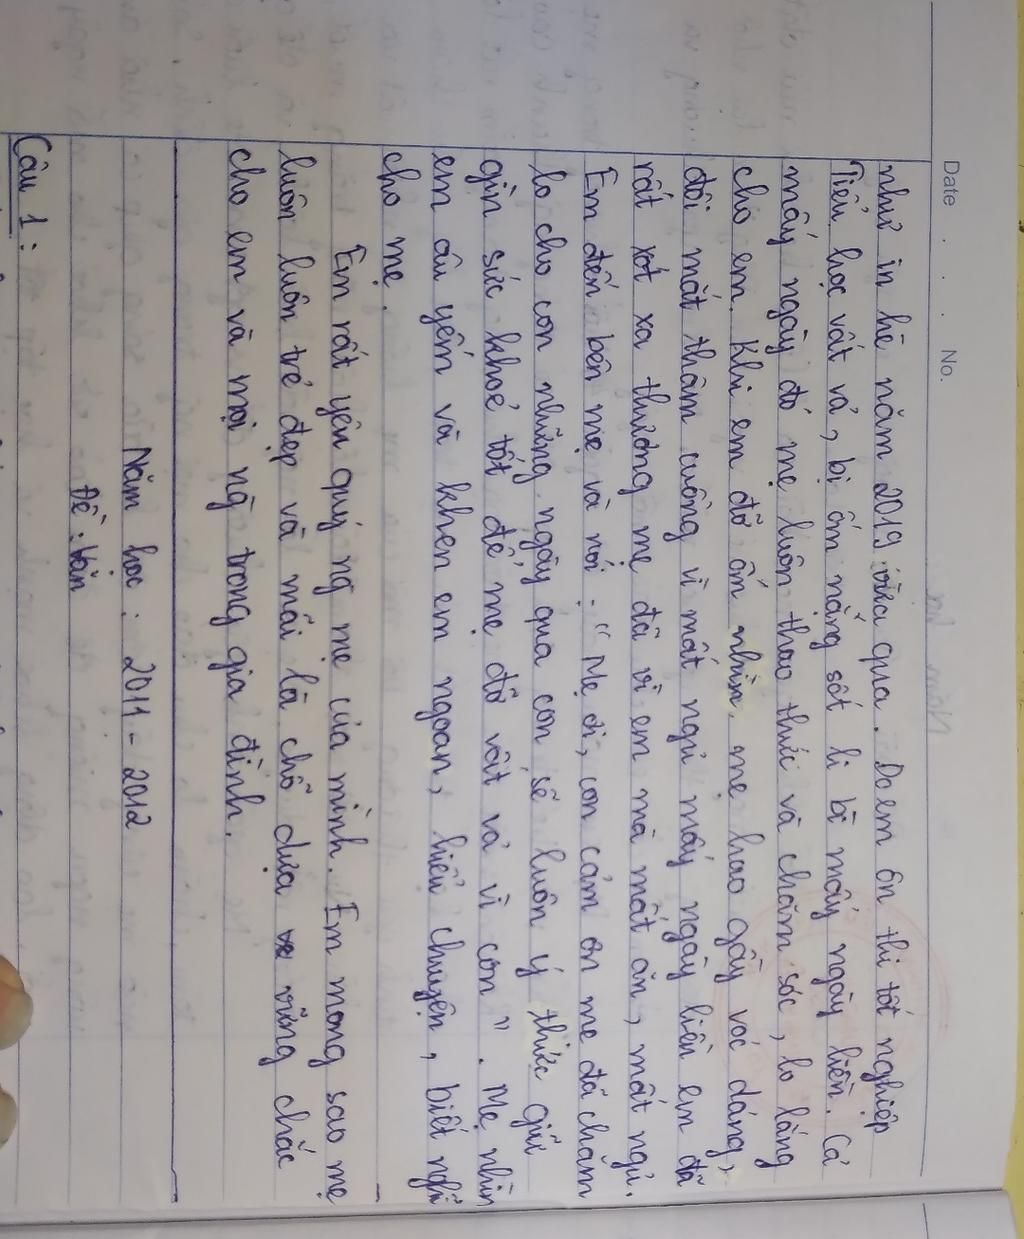 Date . . . No.
như in hè năm 2019 vừa qua. Do em ôn thi tốt nghiệp
Tiểu học vất vả, bị ốm nặng sốt li bì mấy ngày liền. Cả
mấy ngày đó mẹ luôn thao thức và chăm sóc, lo lắng
cho em. Khi em đỡ ốm nhìn mẹ hao gầy vóc dáng,
đôi mắt thâm cuồng vì mất ngủ mấy ngày liền em đã
rất xót xa thương mẹ đã vì em mà mất ăn, mất ngủ.
Em đến bên mẹ và nói: "Mẹ ơi, con cảm ơn mẹ đã chăm
lo cho con những ngày qua con sẽ luôn ý thức giữ
gìn sức khoẻ tốt để mẹ đỡ vất vả vì con". Mẹ nhìn
em âu yếm và khen em ngoan, hiểu chuyện, biết nghĩ
cho mẹ.
Em rất yêu quý ng mẹ của mình. Em mong sao mẹ
luôn luôn trẻ đẹp và mãi là chỗ dựa vững chắc
cho em và mọi ng trong gia đình.
Năm học: 2011-2012
Đề: Văn
Câu 1: